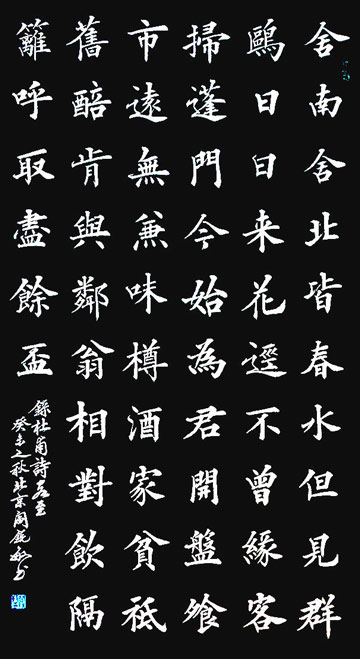 舍南舍北皆春水但見群
鷗日日来花逕不曾緣客
掃蓬門今始為君開盤飧
市遠無兼味樽酒家貧祗
舊醅肯與鄰翁相對飲隔
籬呼取盡餘盃
錄杜甫詩客至
癸未之秋北京